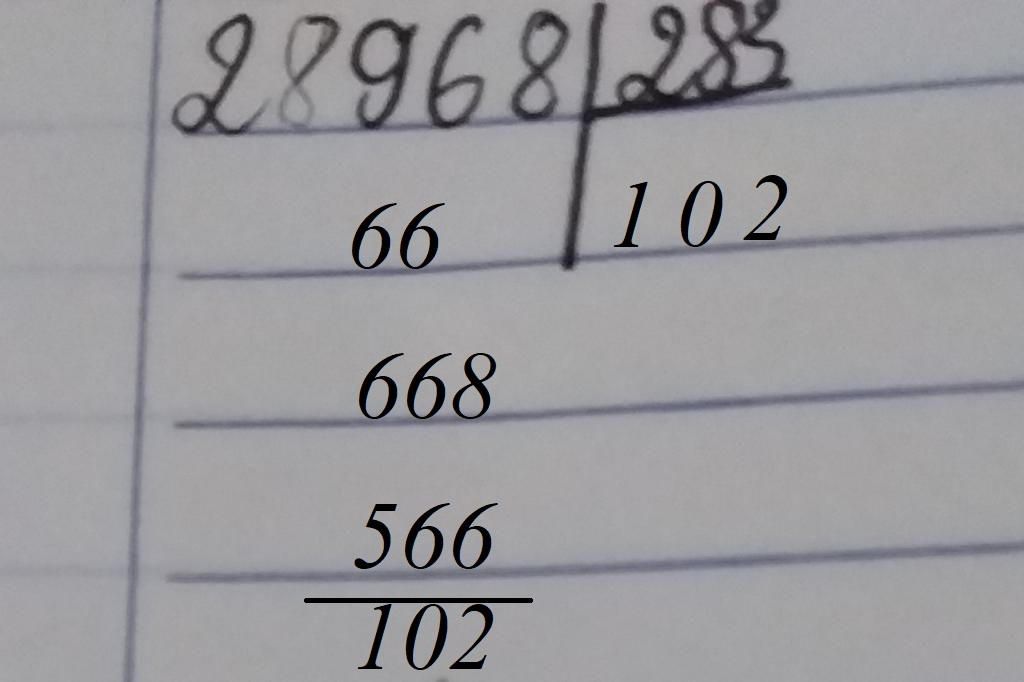 28968 283
66 1 0 2
668
566
102